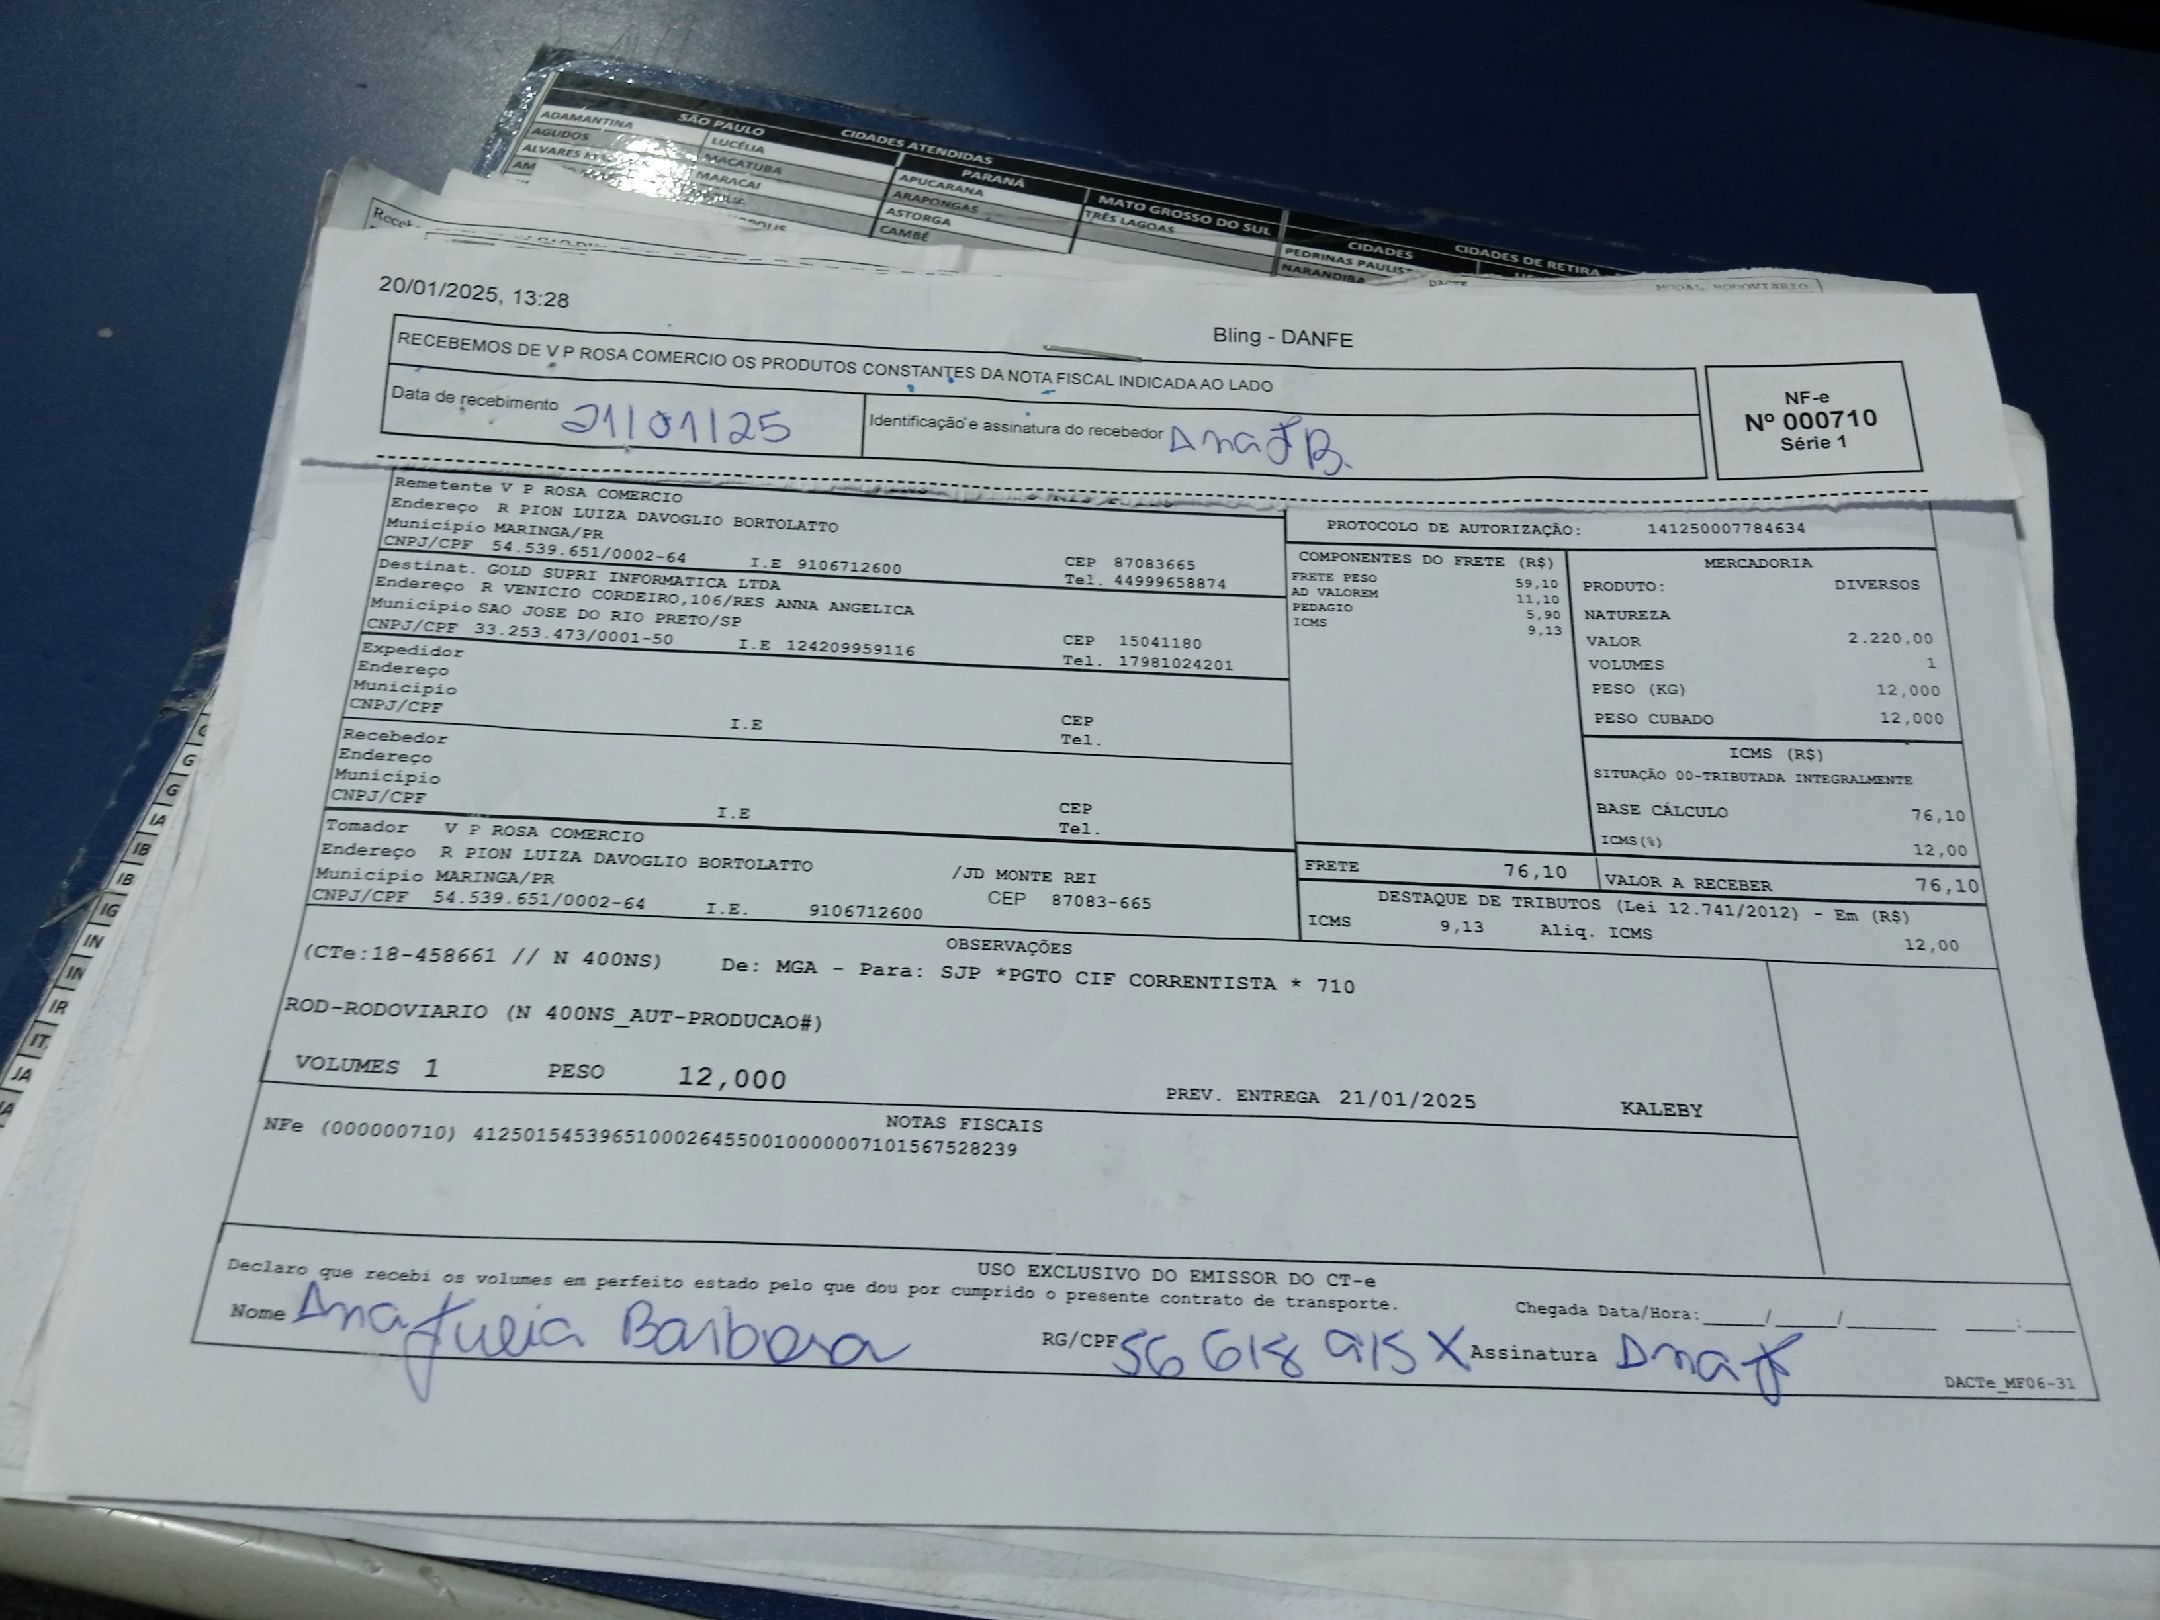 SÃO PAULO CIDADES ATENDIDAS
ADAMANTINA LUCÉLIA PARANÁ MATO GROSSO DO SUL CIDADES CIDADES DE RETIRA
AGUDOS MACATUBA APUCARANA TRÊS LAGOAS PEDRINAS PAULIS
ALVARES MARACAI ARAPONGAS NARANDIBA
ASTORGA
CAMBÉ
DACTE MODAL RODOVIÁRIO
20/01/2025, 13:28
Bling - DANFE
RECEBEMOS DE V P ROSA COMERCIO OS PRODUTOS CONSTANTES DA NOTA FISCAL INDICADA AO LADO
Data de recebimento 21/01/25
Identificação e assinatura do recebedor Ana J B.
NF-e
Nº 000710
Série 1
Remetente V P ROSA COMERCIO
Endereço R PION LUIZA DAVOGLIO BORTOLATTO
Município MARINGA/PR CEP 87083665
CNPJ/CPF 54.539.651/0002-64 I.E 9106712600 Tel. 44999658874
Destinat. GOLD SUPRI INFORMATICA LTDA
Endereço R VENICIO CORDEIRO,106/RES ANNA ANGELICA
Município SAO JOSE DO RIO PRETO/SP CEP 15041180
CNPJ/CPF 33.253.473/0001-50 I.E 124209959116 Tel. 17981024201
Expedidor
Endereço
Município CEP
CNPJ/CPF I.E Tel.
Recebedor
Endereço
Município CEP
CNPJ/CPF I.E Tel.
Tomador V P ROSA COMERCIO
Endereço R PION LUIZA DAVOGLIO BORTOLATTO /JD MONTE REI
Município MARINGA/PR CEP 87083-665
CNPJ/CPF 54.539.651/0002-64 I.E. 9106712600
PROTOCOLO DE AUTORIZAÇÃO: 141250007784634
COMPONENTES DO FRETE (R$)
FRETE PESO 59,10
AD VALOREM 11,10
PEDAGIO 5,90
ICMS 9,13
MERCADORIA
PRODUTO: DIVERSOS
NATUREZA
VALOR 2.220,00
VOLUMES 1
PESO (KG) 12,000
PESO CUBADO 12,000
ICMS (R$)
SITUAÇÃO 00-TRIBUTADA INTEGRALMENTE
BASE CÁLCULO 76,10
ICMS(%) 12,00
FRETE 76,10 VALOR A RECEBER 76,10
DESTAQUE DE TRIBUTOS (Lei 12.741/2012) - Em (R$)
ICMS 9,13 Aliq. ICMS 12,00
OBSERVAÇÕES
(CTe:18-458661 // N 400NS) De: MGA - Para: SJP *PGTO CIF CORRENTISTA * 710
ROD-RODOVIARIO (N 400NS_AUT-PRODUCAO#)
VOLUMES 1 PESO 12,000 PREV. ENTREGA 21/01/2025 KALEBY
NOTAS FISCAIS
NFe (000000710) 41250154539651000264550010000007101567528239
USO EXCLUSIVO DO EMISSOR DO CT-e
Declaro que recebi os volumes em perfeito estado pelo que dou por cumprido o presente contrato de transporte. Chegada Data/Hora:____/____/______ ___:___
Nome Ana Júlia Barbosa RG/CPF 56 618 915 X Assinatura Ana J
DACTe_MF06-31